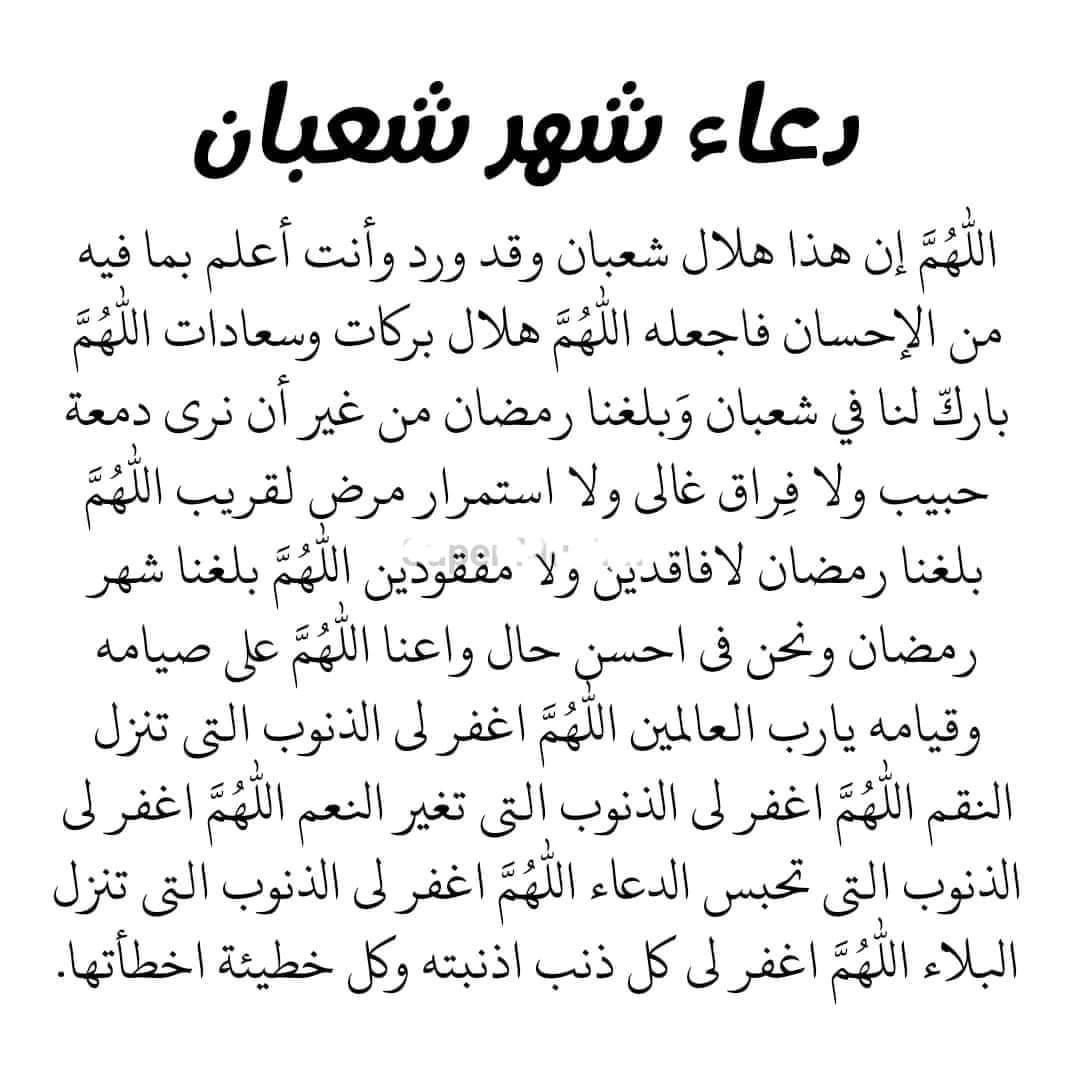 دعاء شهر شعبان
اللّٰهُمَّ إن هذا هلال شعبان وقد ورد وأنت أعلم بما فيه
من الإحسان فاجعله اللّٰهُمَّ هلال بركات وسعادات اللّٰهُمَّ
باركّ لنا في شعبان وَبلغنا رمضان من غير أن نرى دمعة
حبيب ولا فِراق غالى ولا استمرار مرض لقريب اللّٰهُمَّ
بلغنا رمضان لافاقدين ولا مفقودين اللّٰهُمَّ بلغنا شهر
رمضان ونحن فى احسن حال واعنا اللّٰهُمَّ على صيامه
وقيامه يارب العالمين اللّٰهُمَّ اغفر لى الذنوب التى تنزل
النقم اللّٰهُمَّ اغفر لى الذنوب التى تغير النعم اللّٰهُمَّ اغفر لى
الذنوب التى تحبس الدعاء اللّٰهُمَّ اغفر لى الذنوب التى تنزل
البلاء اللّٰهُمَّ اغفر لى كل ذنب اذنبته وكل خطيئة اخطأتها.